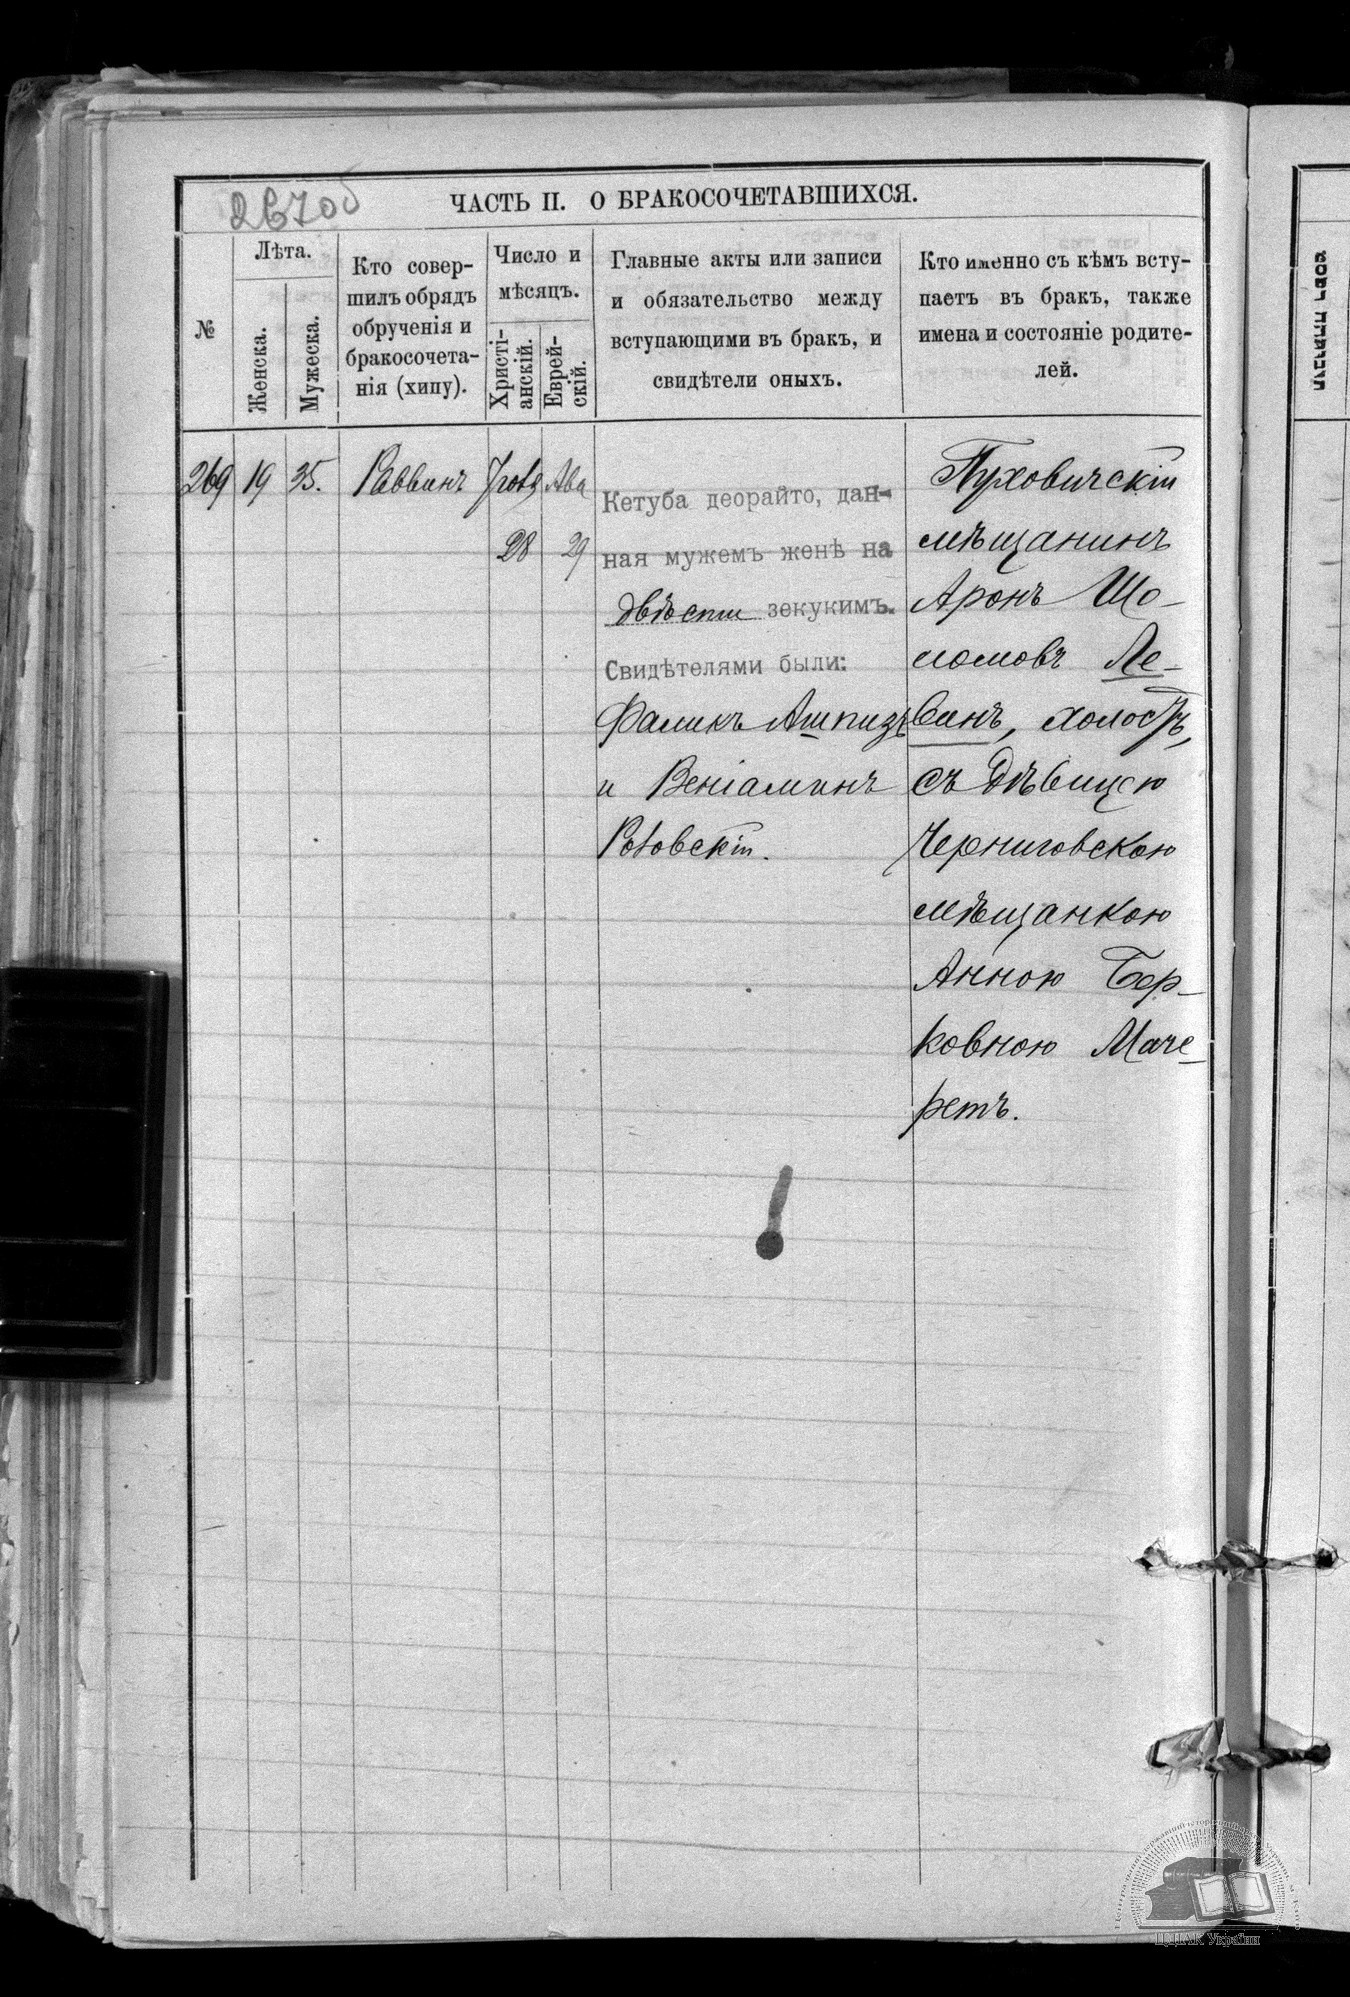 267об
ЧАСТЬ II. О БРАКОСОЧЕТАВШИХСЯ.
№
Лѣта.
Женска.
Мужеска.
Кто совер-
шилъ обрядъ
обрученія и
бракосочета-
нія (хипу).
Число и
мѣсяцъ.
Христі-
анскій.
Еврей-
скій.
Главные акты или записи
и обязательство между
вступающими въ бракъ, и
свидѣтели оныхъ.
Кто именно съ кѣмъ всту-
паетъ въ бракъ, также
имена и состояніе родите-
лей.
269 19 35. Раввинъ Іюля Ава
28 29
Кетуба деорайто, дан-
ная мужемъ женѣ на
двѣсти зекукимъ.
Свидѣтелями были:
Фаликъ Ашпизъ
и Веніаминъ
Ротовскій.
Пуховичскій
мѣщанинъ
Аронъ Шо-
ломовъ Ле-
винъ, холостъ,
съ дѣвицею
Черниговскою
мѣщанкою
Анною Бер-
ковною Маче-
ретъ.
ЦДІАК України